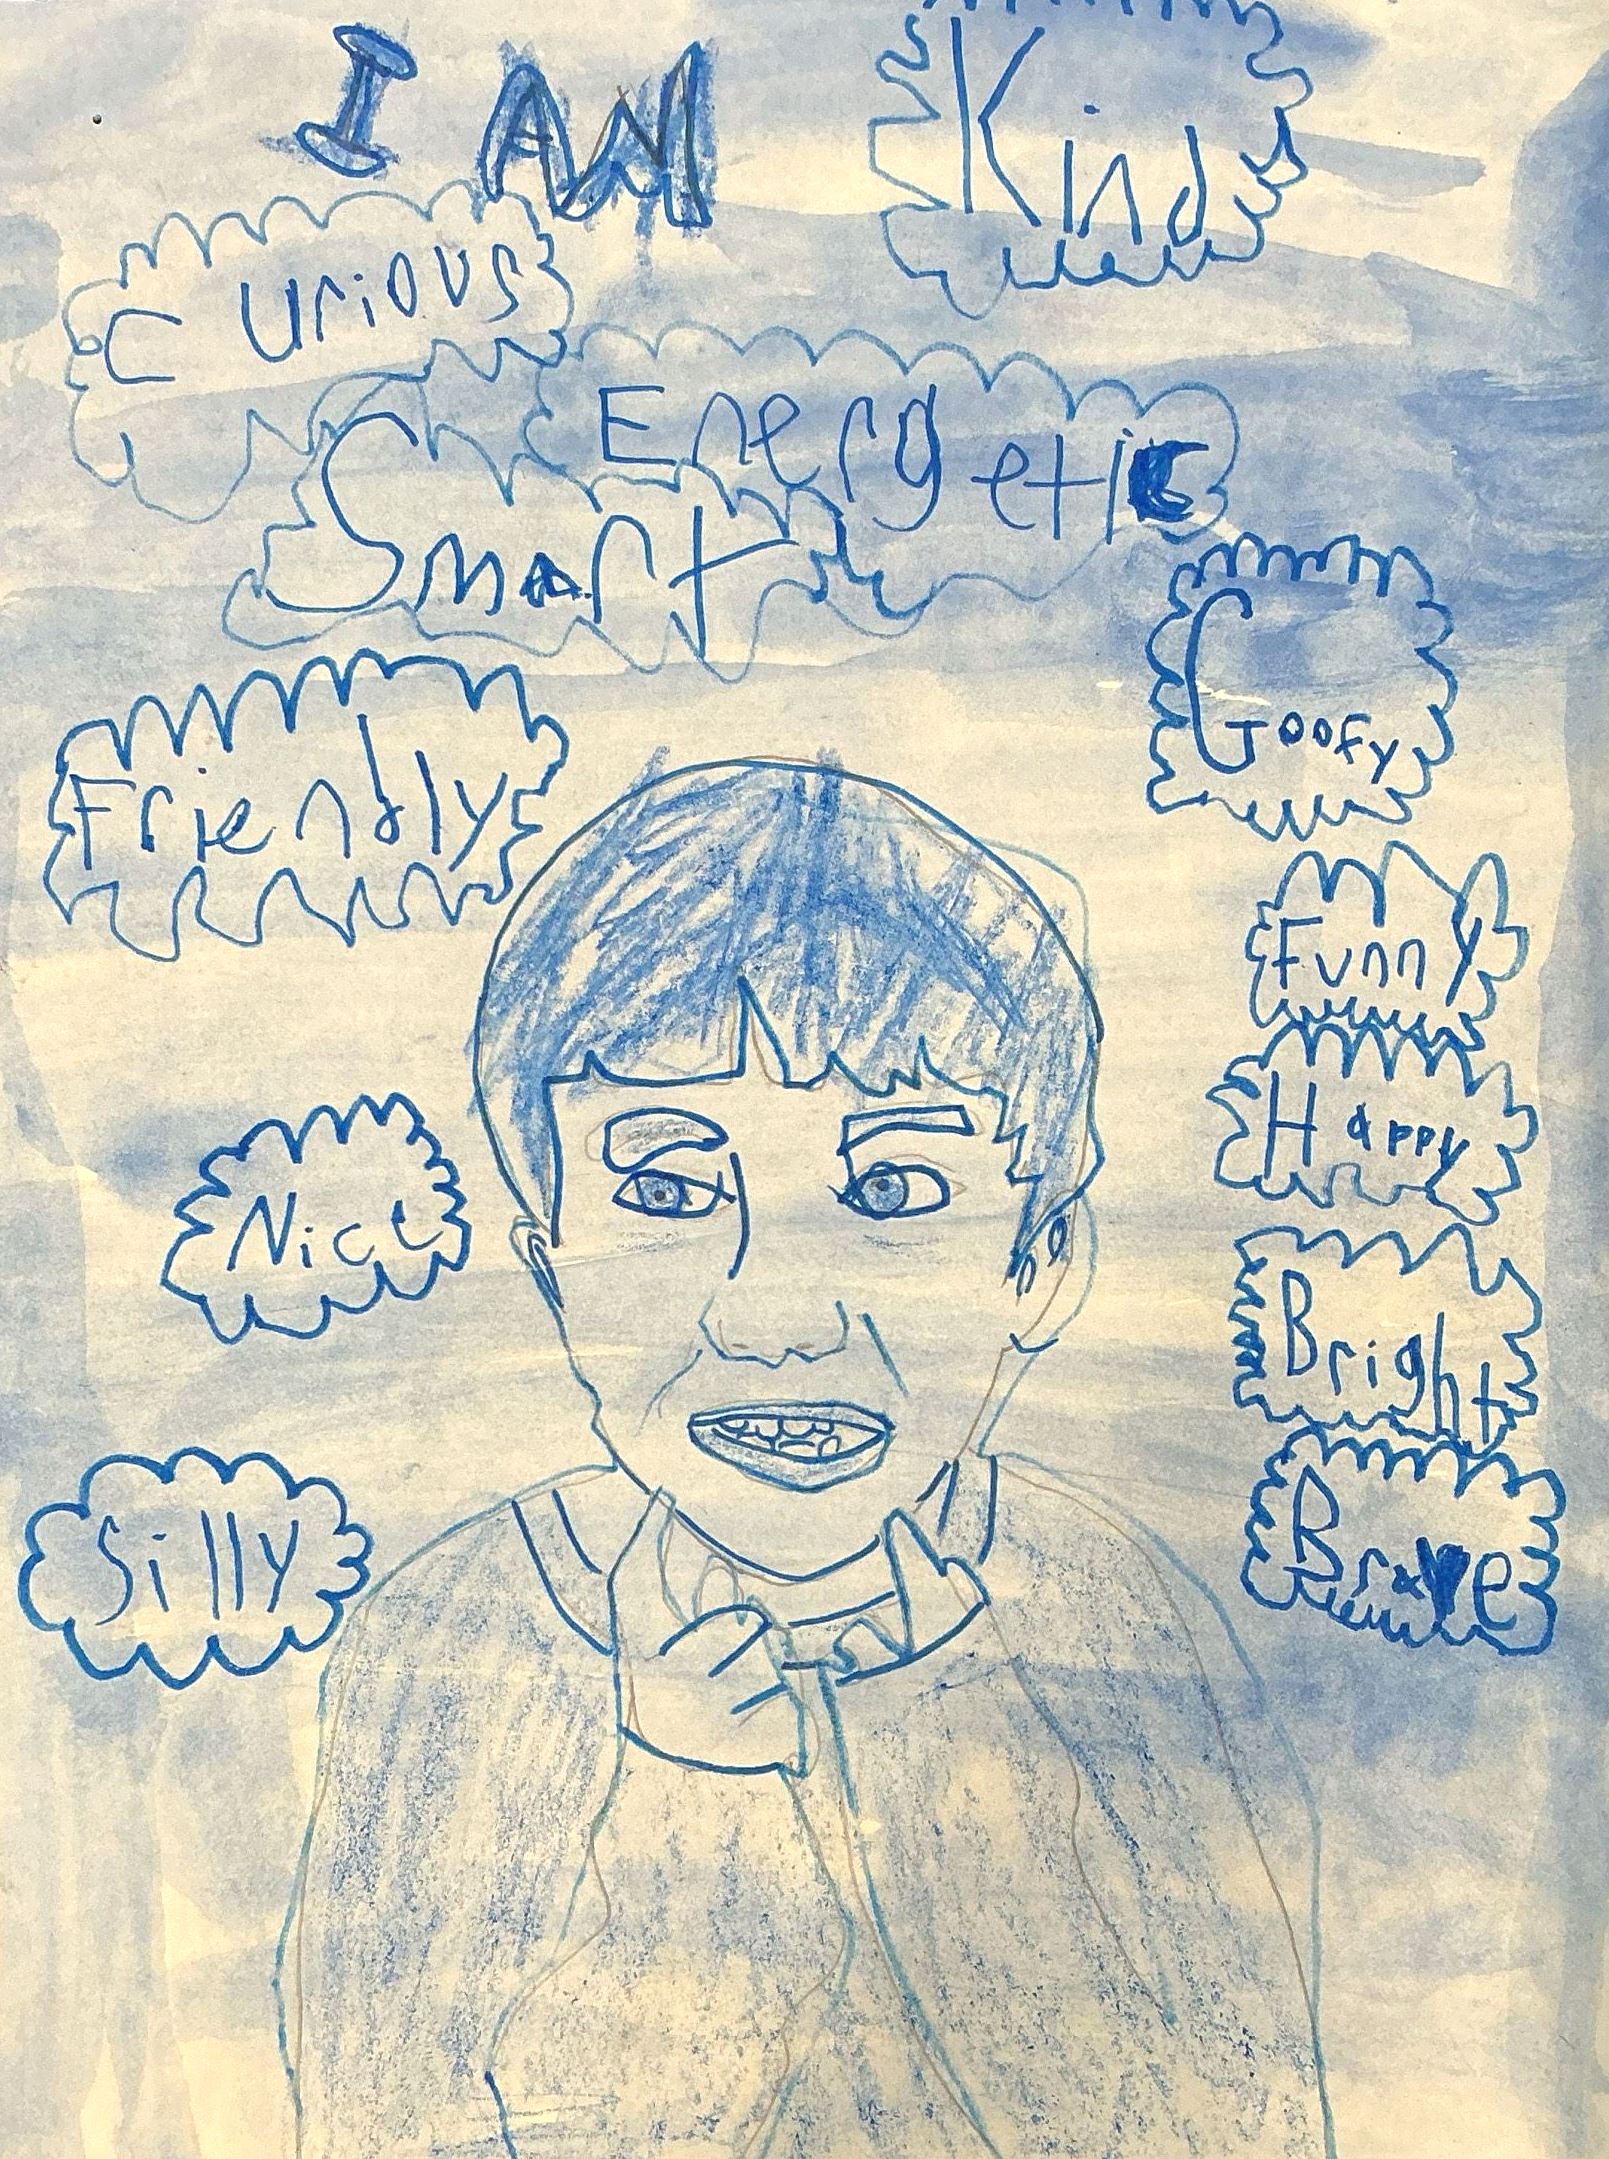 I AM
Kind
Curious
Energetic
Smart
Goofy
Friendly
Funny
Happy
Nice
Bright
Silly
Brave